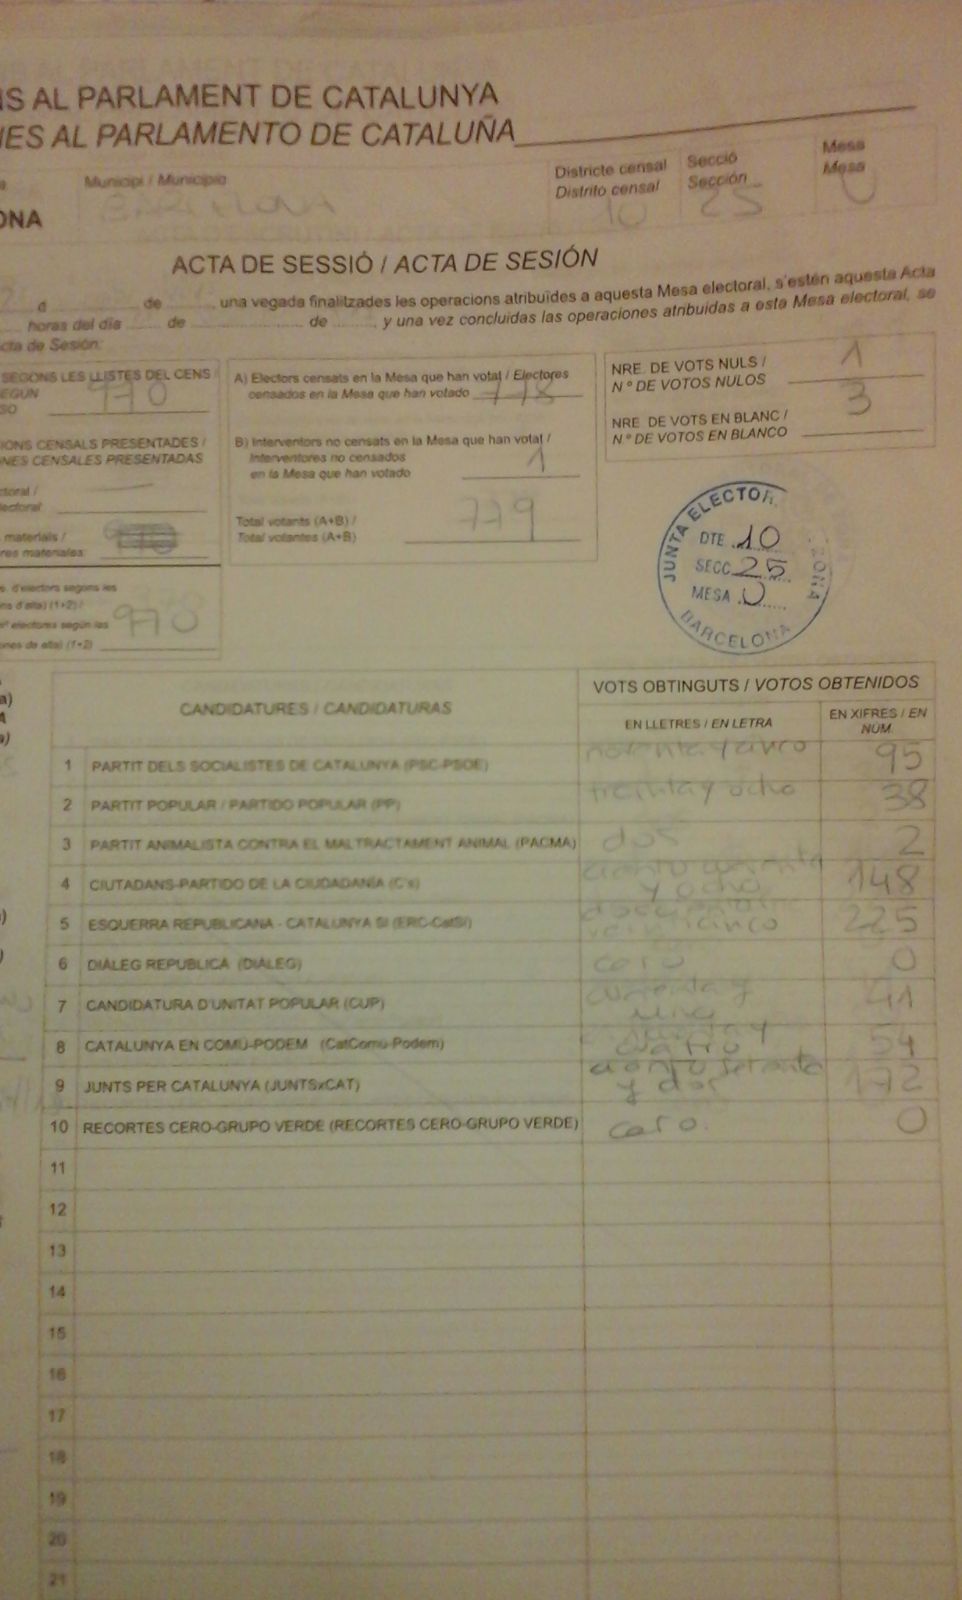 NS AL PARLAMENT DE CATALUNYA
NES AL PARLAMENTO DE CATALUÑA
Municipi / Municipio
BARCELONA
Districte censal
Distrito censal
10
Secció
Sección
25
Mesa
Mesa
U
ONA
ACTA DE SESSIÓ / ACTA DE SESIÓN
a de , una vegada finalitzades les operacions atribuïdes a aquesta Mesa electoral, s'estén aquesta Acta
horas del día de de , y una vez concluidas las operaciones atribuidas a esta Mesa electoral, se
cta de Sesión:
SEGONS LES LLISTES DEL CENS /
EGÚN
SO
970
IONS CENSALS PRESENTADES /
NES CENSALES PRESENTADAS
ctoral /
lectoral
materials /
res materiales
e. d'electors segons les
ons d'alta) (1+2) /
nº electores según las
ones de alta) (1+2)
970
A) Electors censats en la Mesa que han votat / Electores
censados en la Mesa que han votado 778
B) Interventors no censats en la Mesa que han votat /
Interventores no censados
en la Mesa que han votado 1
Total votants (A+B) /
Total votantes (A+B) 779
NRE. DE VOTS NULS /
N º DE VOTOS NULOS 1
NRE. DE VOTS EN BLANC /
N º DE VOTOS EN BLANCO 3
JUNTA ELECTOR
DTE. 10
SECC. 25
MESA. U
BARCELONA
CANDIDATURES / CANDIDATURAS
VOTS OBTINGUTS / VOTOS OBTENIDOS
EN LLETRES / EN LETRA
EN XIFRES / EN NÚM.
1 PARTIT DELS SOCIALISTES DE CATALUNYA (PSC-PSOE) noventa y cinco 95
2 PARTIT POPULAR / PARTIDO POPULAR (PP) treinta y ocho 38
3 PARTIT ANIMALISTA CONTRA EL MALTRACTAMENT ANIMAL (PACMA) dos 2
4 CIUTADANS-PARTIDO DE LA CIUDADANÍA (C's) ciento cuarenta y ocho 148
5 ESQUERRA REPUBLICANA - CATALUNYA SÍ (ERC-CatSí) doscientos veinticinco 225
6 DIÀLEG REPÚBLICA (DIÀLEG) cero 0
7 CANDIDATURA D'UNITAT POPULAR (CUP) cuarenta y uno 41
8 CATALUNYA EN COMÚ-PODEM (CatComú-Podem) cincuenta y cuatro 54
9 JUNTS PER CATALUNYA (JUNTSxCAT) ciento setenta y dos 172
10 RECORTES CERO-GRUPO VERDE (RECORTES CERO-GRUPO VERDE) cero. 0
11
12
13
14
15
16
17
18
19
20
21